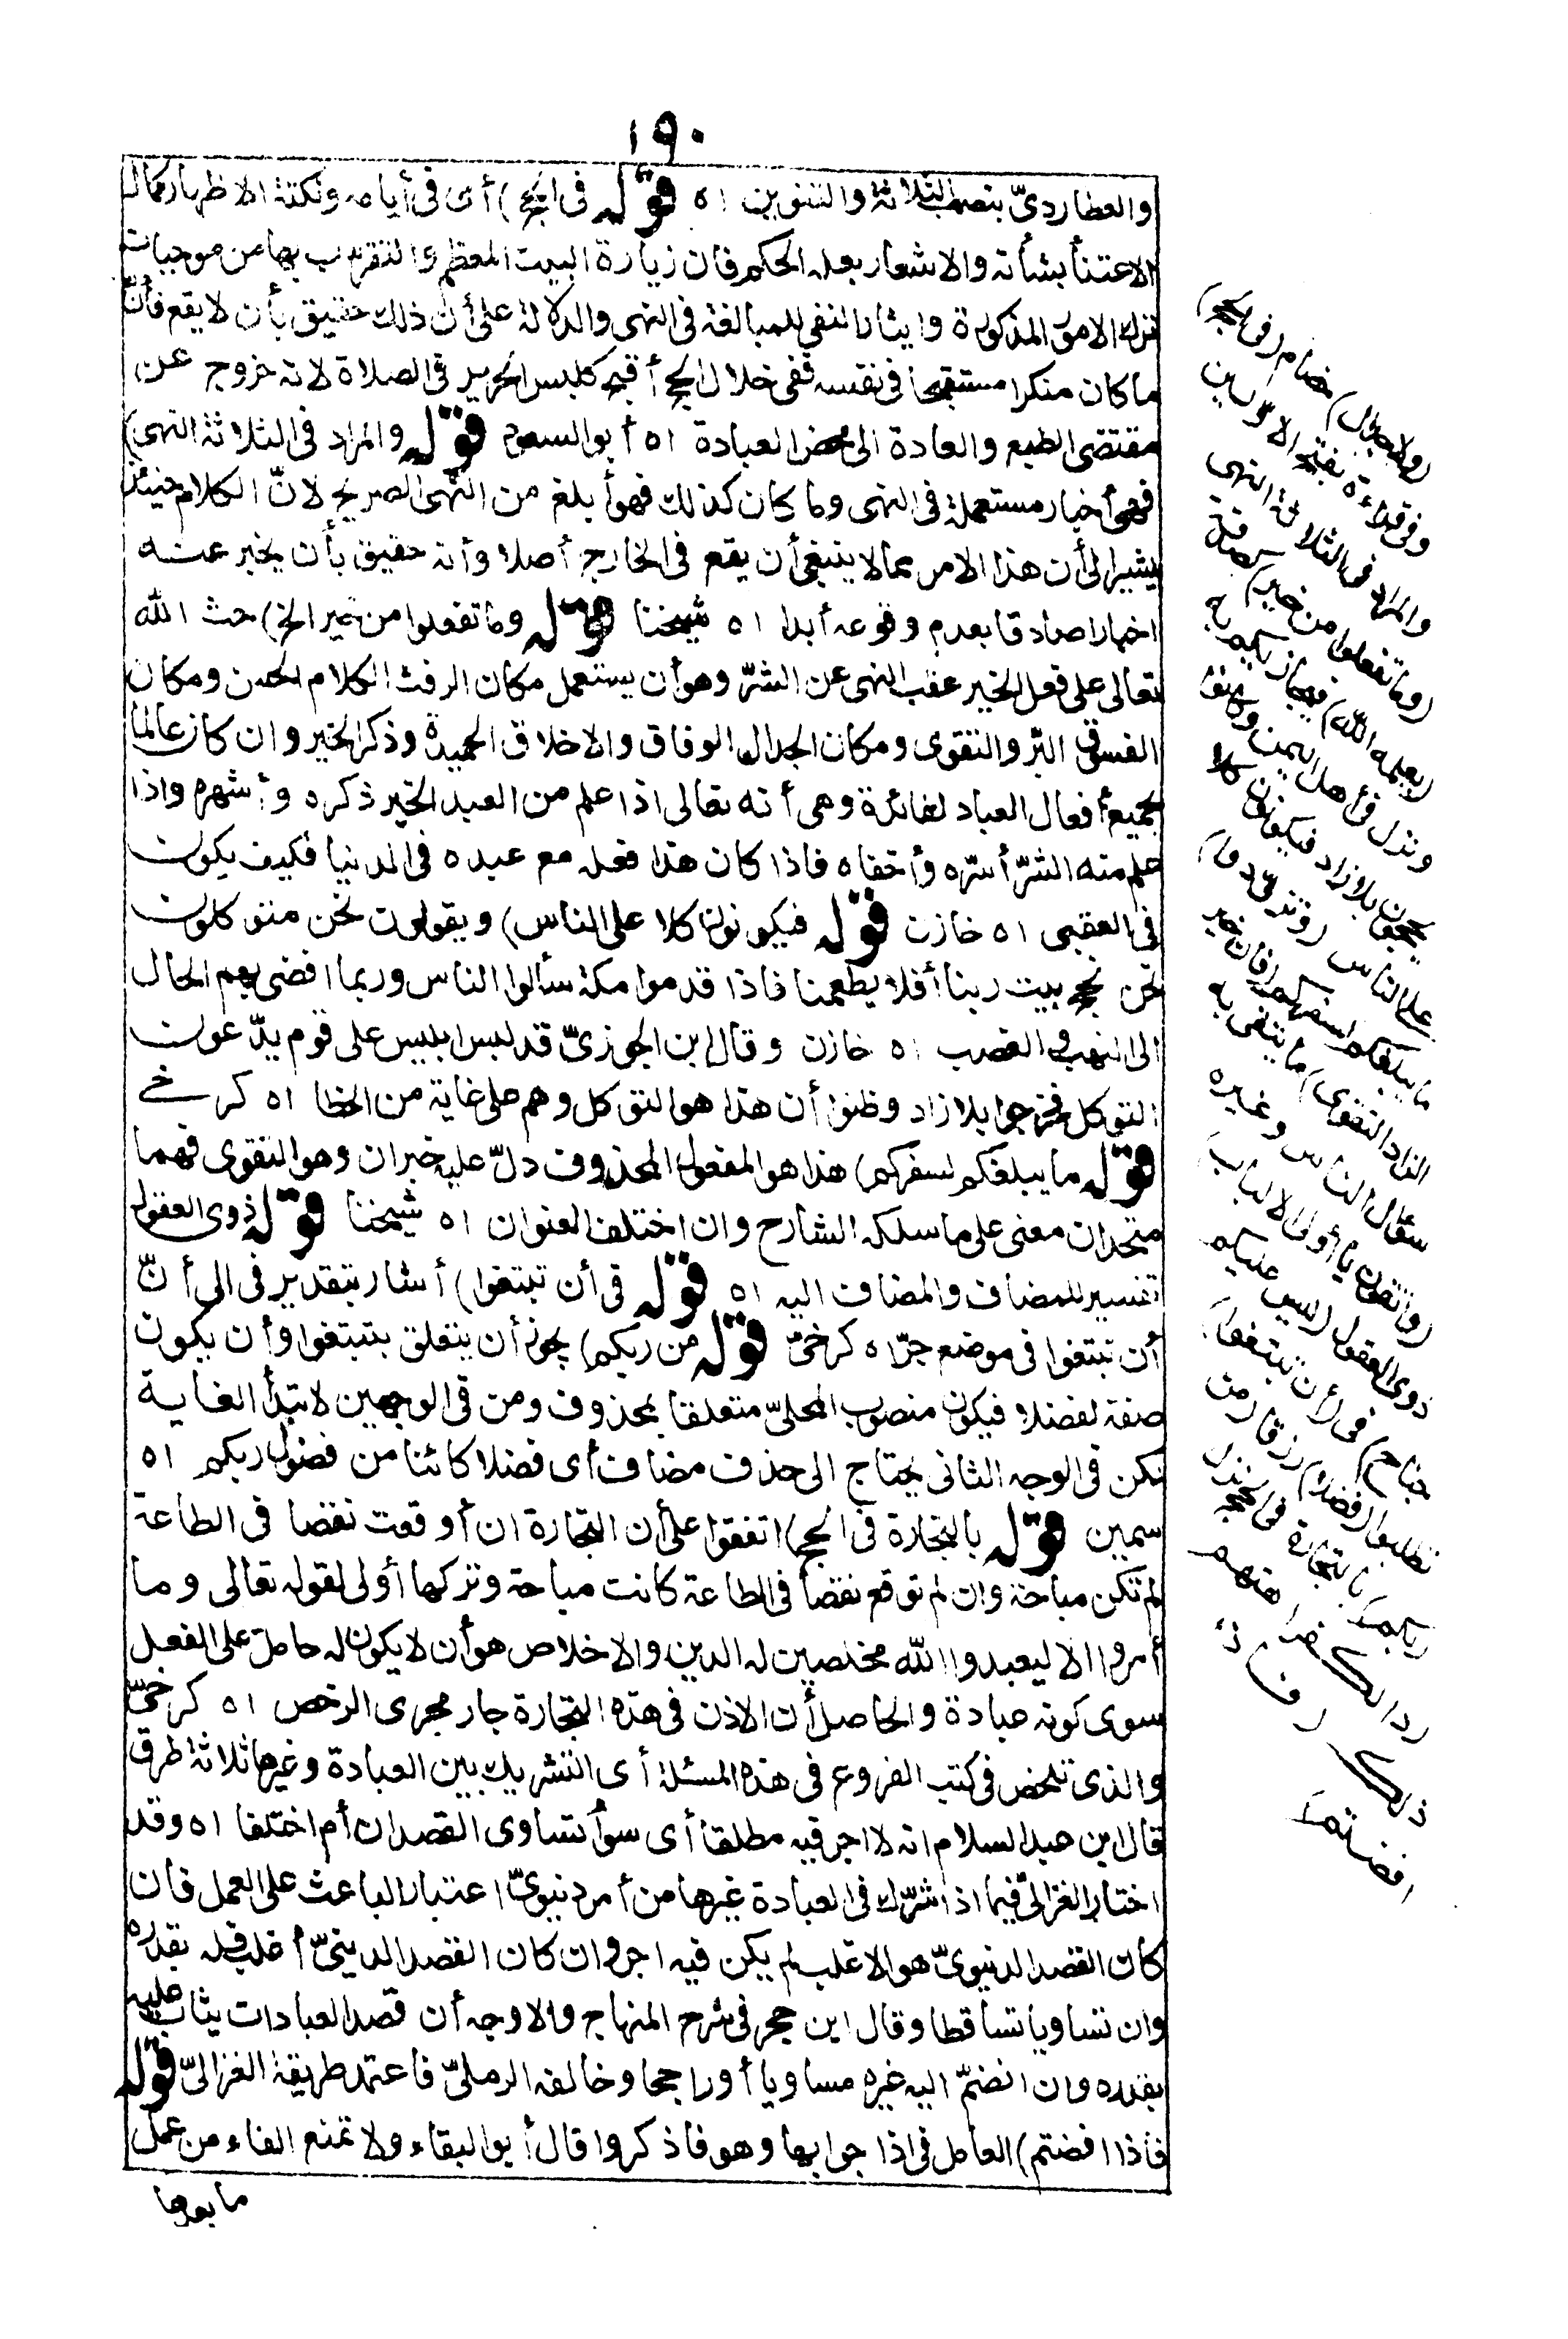 ١٩٠
والعطاردىّ بنصب الثلاثة والتنوين اه قوله فى الحج) أى فى أيامه ونكتة الاظهار كمال
الاعتنأ بشأنه والاشعار بعلة الحكم فان زيارة البيت المعظم والتقرّب بها من موجبات
ترك الامور المذكورة وايثار النفى للمبالغة فى النهى والدلالة على أن ذلك حقيق بأن لا يقع فأنّ
ما كان منكرا مستقبحا فى نفسه ففى خلال الحج أقبح كلبس الحرير فى الصلاة لانه خروج عن
مقتضى الطبع والعادة الى محض العبادة اه أبو السعود قوله والمراد فى الثلاثة النهى)
فهى أخبار مستعملة فى النهى وما كان كذلك فهو أبلغ من النهى الصريح لانّ الكلام حينئذ
يشير الى أن هذا الامر مما لا ينبغى أن يقع فى الخارج أصلا وأنه حقيق بأن يخبر عنه
اخبارا صادقا بعدم وقوعه أبدا اه شيخنا قوله وما تفعلوا من خير الخ) حث الله
تعالى على فعل الخير عقب النهى عن الشرّ وهو أن يستعمل مكان الرفث الكلام الحسن ومكان
الفسوق البرّ والتقوى ومكان الجدال الوفاق والاخلاق الحميدة وذكر الخير وان كان عالما
بجميع أفعال العباد لفائدة وهى أنه تعالى اذا علم من العبد الخير ذكره وأشهره واذا
علم منه الشرّ أسرّه وأخفاه فاذا كان هذا فعله مع عبده فى الدنيا فكيف يكون
فى العقبى اه خازن قوله فيكونون كلا على الناس) ويقولون نحن متوكلون
نحن نحج بيت ربنا أفلا يطعمنا فاذا قدموا مكة سألوا الناس وربما افضى بهم الحال
الى النهب والغصب اه خازن وقال ابن الجوزىّ قد لبس ابليس على قوم يدّعون
التوكل فخرجوا بلا زاد وظنوا أن هذا هو التوكل وهم على غاية من الخطا اه كرخى
قوله ما يبلغكم لسفركم) هذا هو المفعول المحذوف دلّ عليه خبر ان وهو التقوى فهما
متحدان معنى على ما سلكه الشارح وان اختلف العنوان اه شيخنا قوله ذوى العقول
تفسير للمضاف والمضاف اليه اه قوله فى أن تبتغوا) أشار بتقدير فى الى أنّ
أن تبتغوا فى موضع جرّ اه كرخىّ قوله من ربكم) يجوز أن يتعلق بتبتغوا وأن يكون
صفة لفضلا فيكون منصوب المحلّ متعلقا بمحذوف ومن فى الوجهين لابتدأ الغاية
نكن فى الوجه الثانى يحتاج الى حذف مضاف أى فضلا كائنا من فضول ربكم اه
سمين قوله بالتجارة فى الحج) اتفقوا على أن التجارة ان أوقعت نقصا فى الطاعة
لم تكن مباحة وان لم توقع نقصا فى الطاعة كانت مباحة وتركها أولى لقوله تعالى وما
أمروا الا ليعبدوا الله مخلصين له الدين والاخلاص هو أن لا يكون له حامل على الفعل
سوى كونه عبادة والحاصل أن الاذن فى هذه التجارة جار مجرى الرخص اه كرخىّ
والذى تلخص فى كتب الفروع فى هذه المسئلة أى التشريك بين العبادة وغيرها ثلاثة طرق
قال ابن عبد السلام انه لا اجر فيه مطلقا أى سوأ تساوى القصدان أم اختلفا اه وقد
اختار الغزالىّ فيما اذا شرّك فى العبادة غيرها من أمر دنيوىّ اعتبار الباعث على العمل فان
كان القصد الدنيوىّ هو الاغلب لم يكن فيه اجر وان كان القصد الدينىّ أغلب فله بقدره
وان تساويا تساقطا وقال ابن حجر فى شرح المنهاج والاوجه أن قصد العبادات يثاب عليه
بقدره وان انضمّ اليه غيره مساويا أو راجحا وخالفه الرملىّ فاعتمد طريقة الغزالىّ قوله
فاذا افضتم) العامل فى اذا جوابها وهو فاذكروا قال أبو البقاء ولا تمنع الفاء من عمل
ما بعدها
(ولا جدال) خصام (فى الحج)
وفى قراءة بفتح الاوّلين
والمراد فى الثلاثة النهى
(وما تفعلوا من خير) كصدقة
(يعلمه الله) فيجازيكم به
ونزل فى أهل اليمن وكانوا
يحجون بلا زاد فيكونون كلا
على الناس (وتزوّدوا)
ما يبلغكم لسفركم (فان خير
الزاد التقوى) ما يتقى به
سؤال الناس وغيره
(واتقون يا أولى الالباب)
ذوى العقول (ليس عليكم
جناح) فى (أن تبتغوا)
تطلبوا (فضلا) رزقا (من
ربكم) بالتجارة فى الحج نزل
ردا لكراهتهم
ذلك (فاذا
افضتم)